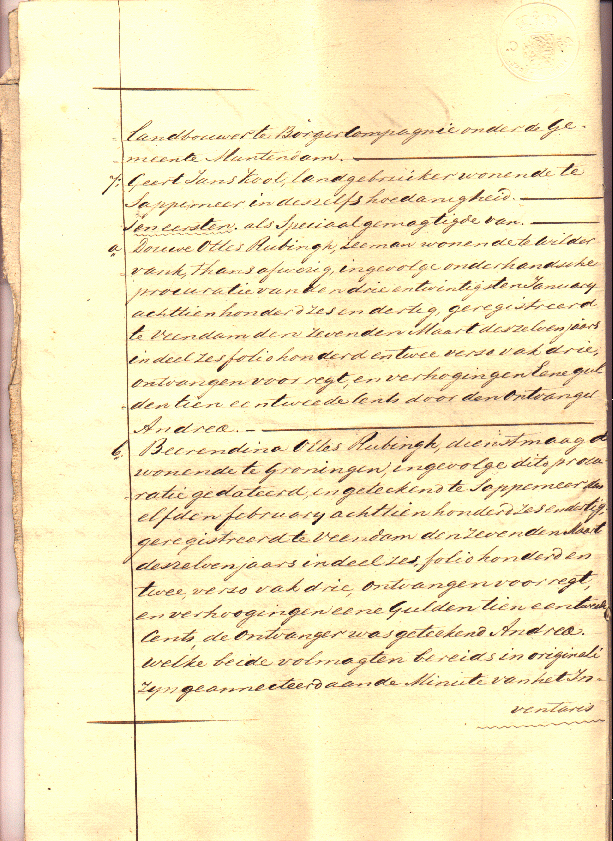 landbouwer te Borgercompagnie onder de Ge-
meente Muntendam.
7: Geert Jans Kool, landgebruiker wonende te
Sappemeer in deszelfs hoedanigheid.
Ten eersten. als Speciaal gemagtigde van.
a. Douwe Olles Rubingh, zeeman wonende te Wilder
vank, thans afwezig, ingevolge onderhandsche
procuratie van den drie entwintigsten January
achttien honderd zes en dertig, geregistreerd
te Veendam den zevenden Maart deszelven jaars
in deel zes folio honderd en twee verso vak drie,
ontvangen voor regt, en verhogingen Eene gul
den tien een tweede Cents door den Ontvanger
Andreæ.
b. Beerendina Olles Rubingh, dienstmaagd
wonende te Groningen, ingevolge dito procu
ratie gedateerd, en geteekend te Sappemeer den
elfden february achttien honderd zes en dertig
geregistreerd te Veendam den zevenden Maart
deszelven jaars in deel zes, folio honderd en
twee, verso vak drie, ontvangen voor regt,
en verhoogingen eene Gulden tien een tweede
Cents, de Ontvanger was geteekend Andreæ.
welke beide volmagten bereids in originali
zyn geannecteerd aan de Minute van het In-
ventaris